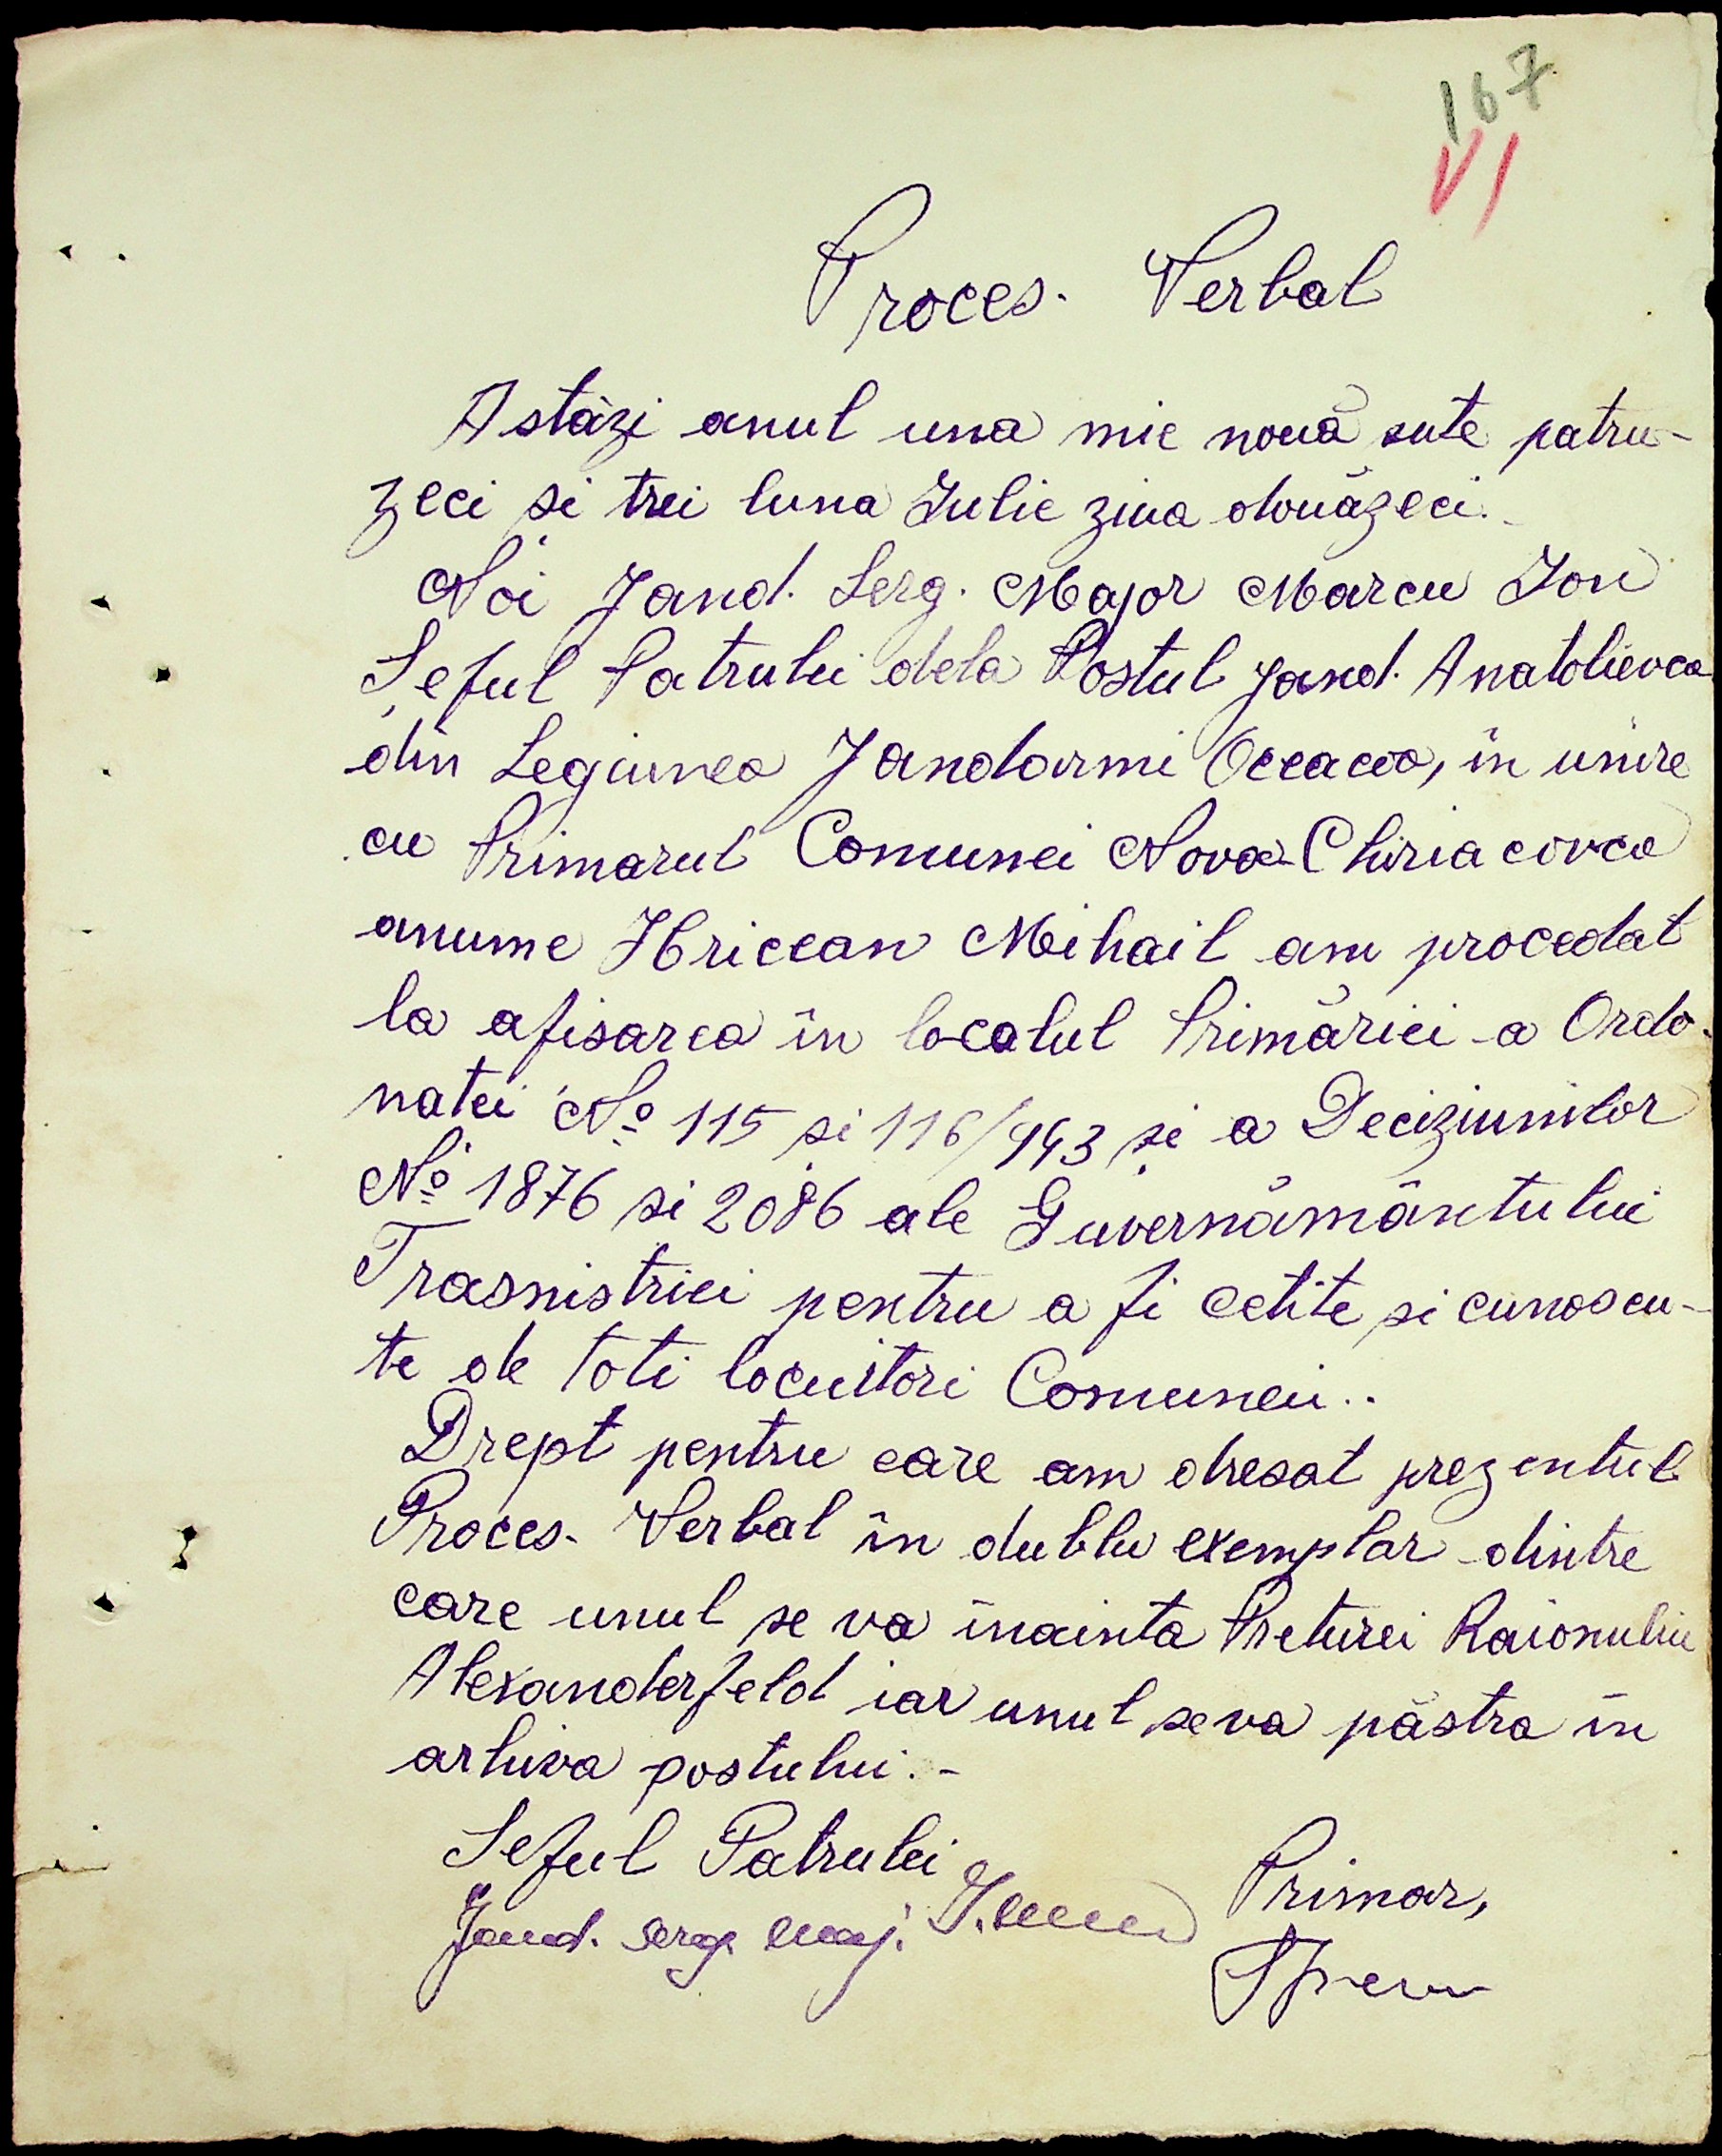 167
VI
Proces. Verbal
Astăzi anul una mie nouă sute patru-
zeci si trei luna Iulie ziua douăzeci.-
Noi Jand. Serg. Major Marcu Ion
Șeful Patrulei dela Postul Jand. Anatolievca
din Legiunea Jandarmi Oceacov, în unire
cu Primarul Comunei Nova-Chiriacovca
anume Hriccan Mihail am procedat
la afisarea în localul Primăriei a Ordo-
natei No 115 si 116/943 și a Deciziunilor
No 1876 si 2086 ale Guvernământului
Trasnistriei pentru a fi cetite si cunoscu-
te de toti locuitori Comunei..
Drept pentru care am dresat prezentul
Proces- Verbal în dublu exemplar dintre
care unul se va inainta Preturei Raionului
Alexanderfeld iar unul se va păstra in
arhiva postului.-
Seful Patrulei
Primar,
Jand. serg. maj.